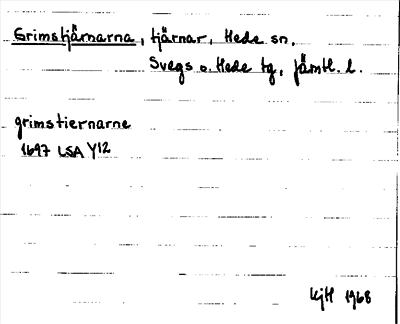 Grimstjärnarna, tjärnar, Hede sn,
Svegs o. Hede tg, Jämtl. l.
grimstiernarne
1697 LSA Y12
KjH 1968